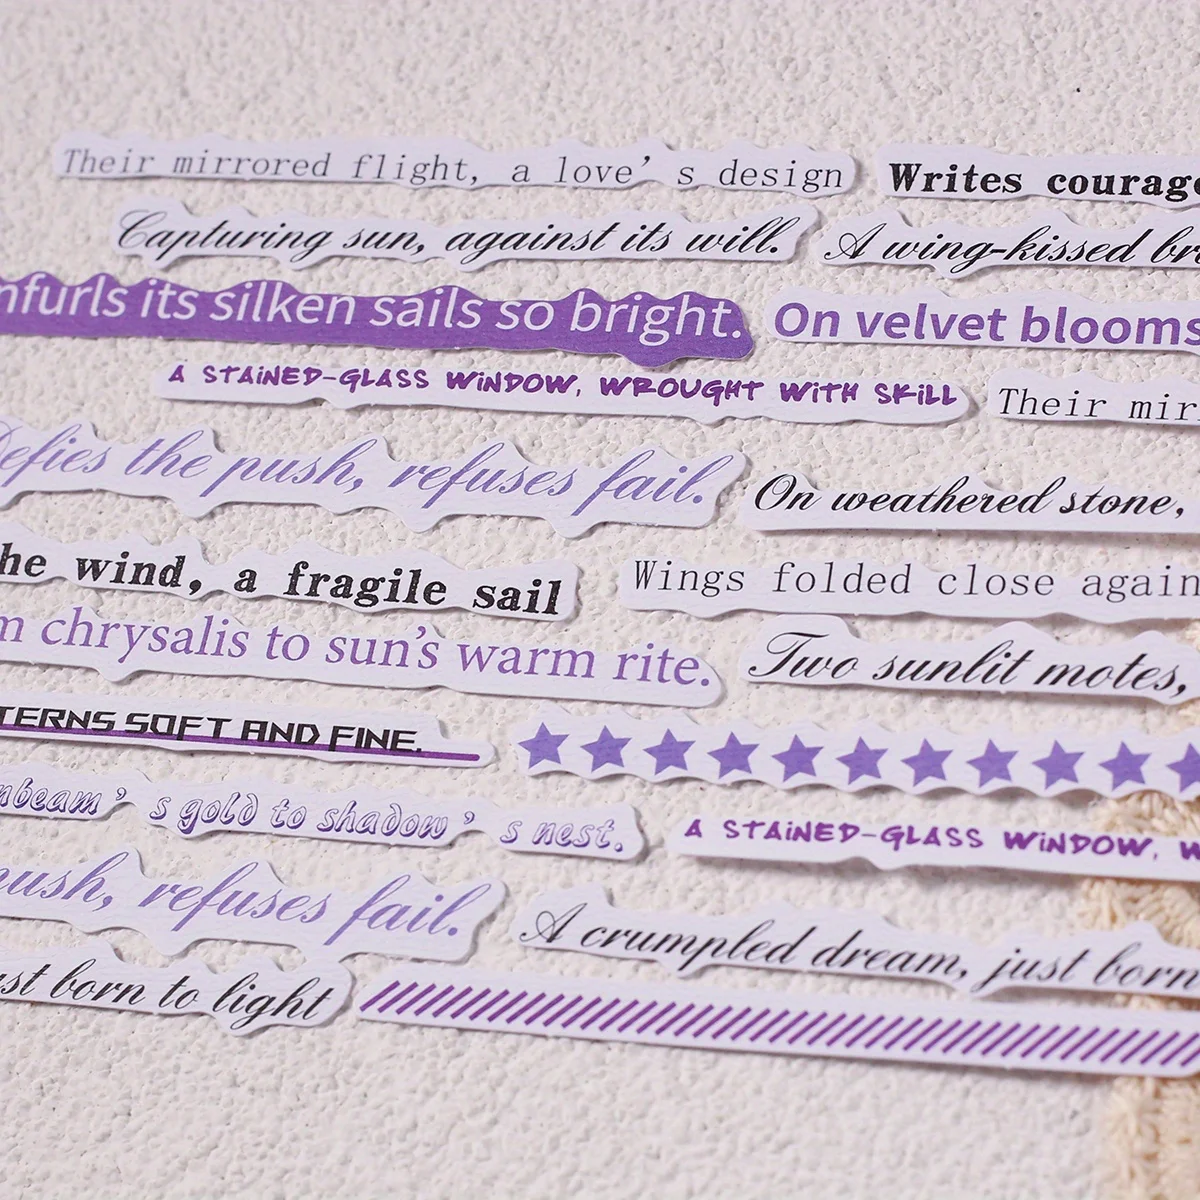 Their mirrored flight, a love's design
Writes courage
Capturing sun, against its will.
A wing-kissed
its silken sails so bright.
On velvet blooms
A STAINED-GLASS WINDOW, WROUGHT WITH SKILL
Their
Defies the push, refuses fail.
On weathered stone,
wind, a fragile sail
Wings folded close
chrysalis to sun's warm rite.
Two sunlit motes,
SOFT AND FINE.
's gold to shadow's nest.
A STAINED-GLASS WINDOW,
push, refuses fail.
A crumpled dream, just born
born to light